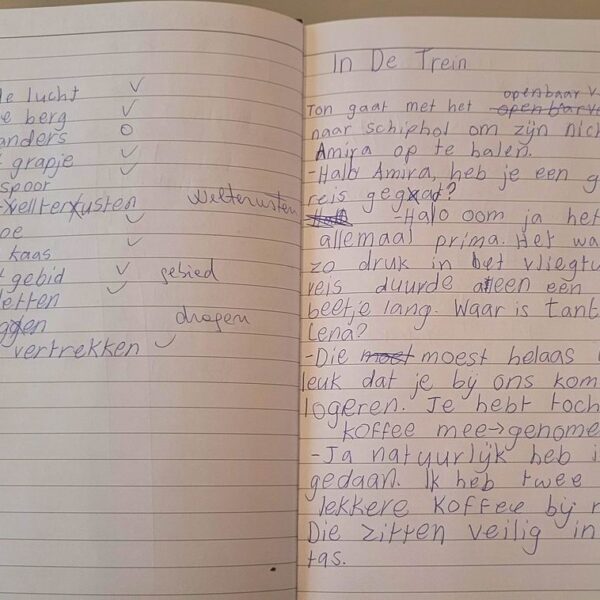 de lucht
e berg
anders
t grapje
spoor
vellterusten welterusten
oe
kaas
t gebid gebied
letten
dragen
vertrekken
In De Trein
openbaar v
Ton gaat met het openbarve
naar schiphol om zijn nich
Amira op te halen.
-Hallo Amira, heb je een g
reis gegaat?
Hall -Halo oom ja het
allemaal prima. Het wa
zo druk in het vliegtu
reis duurde alleen een
beetje lang. Waar is tant
Lena?
-Die moet moest helaas
leuk dat je bij ons kom
logeren. Je hebt toch
koffie mee→genome
-Ja natuurlijk heb i
gedaan. Ik heb twee
lekkere koffee bij m
Die zitten veilig in
tas.